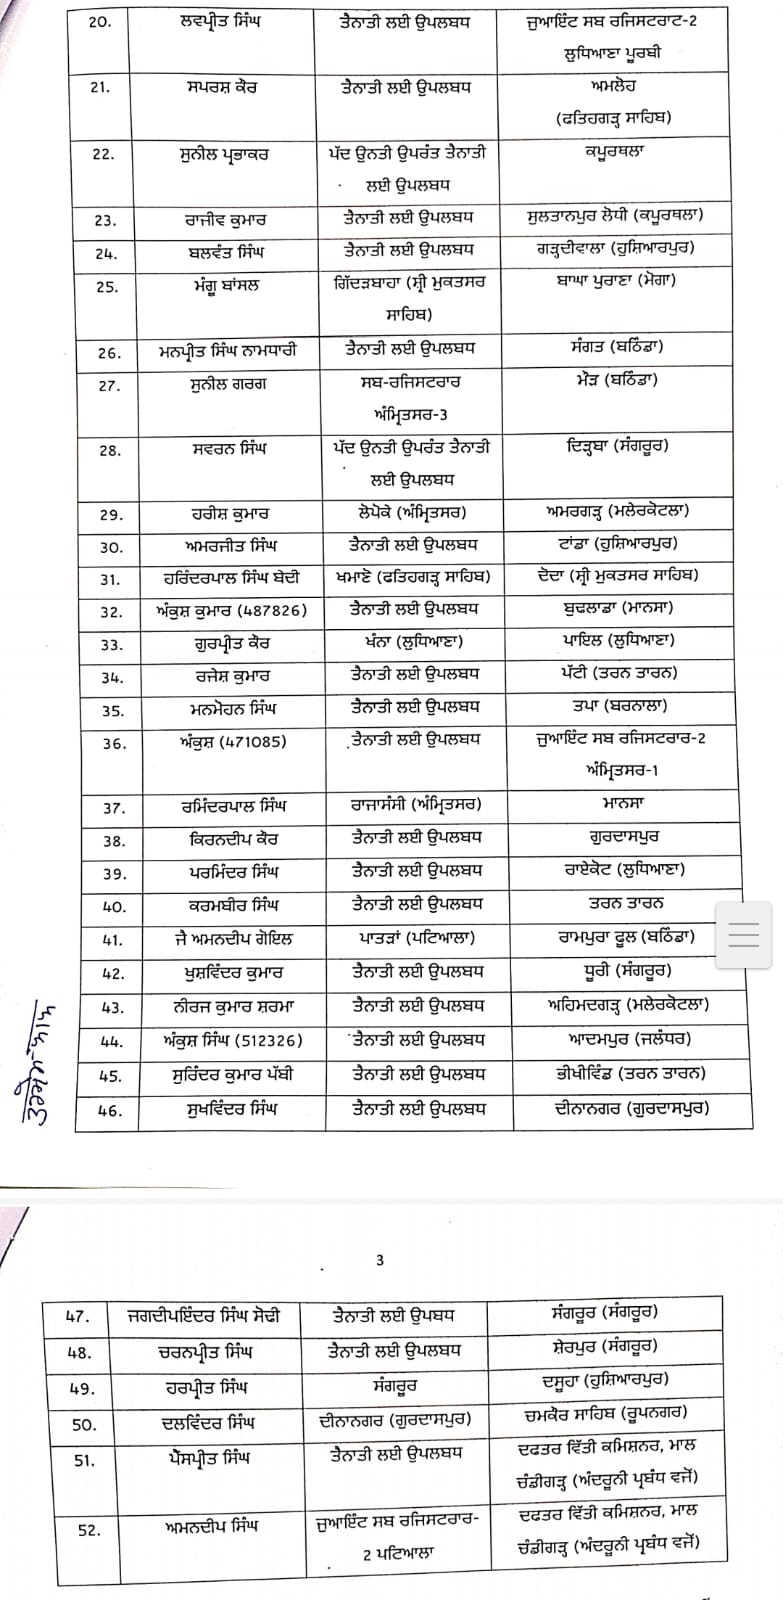 20. ਲਵਪ੍ਰੀਤ ਸਿੰਘ ਤੈਨਾਤੀ ਲਈ ਉਪਲਬਧ ਜੁਆਇੰਟ ਸਬ ਰਜਿਸਟਰਾਟ-2
ਲੁਧਿਆਣਾ ਪੂਰਬੀ
21. ਸਪਰਸ਼ ਕੌਰ ਤੈਨਾਤੀ ਲਈ ਉਪਲਬਧ ਅਮਲੋਹ
(ਫਤਿਹਗੜ੍ਹ ਸਾਹਿਬ)
22. ਸੁਨੀਲ ਪ੍ਰਭਾਕਰ ਪੱਦ ਉਨਤੀ ਉਪਰੰਤ ਤੈਨਾਤੀ ਕਪੂਰਥਲਾ
ਲਈ ਉਪਲਬਧ
23. ਰਾਜੀਵ ਕੁਮਾਰ ਤੈਨਾਤੀ ਲਈ ਉਪਲਬਧ ਸੁਲਤਾਨਪੁਰ ਲੋਧੀ (ਕਪੂਰਥਲਾ)
24. ਬਲਵੰਤ ਸਿੰਘ ਤੈਨਾਤੀ ਲਈ ਉਪਲਬਧ ਗੜ੍ਹਦੀਵਾਲਾ (ਹੁਸ਼ਿਆਰਪੁਰ)
25. ਮੰਗੂ ਬਾਂਸਲ ਗਿੱਦੜਬਾਹਾ (ਸ਼੍ਰੀ ਮੁਕਤਸਰ ਬਾਘਾ ਪੁਰਾਣਾ (ਮੋਗਾ)
ਸਾਹਿਬ)
26. ਮਨਪ੍ਰੀਤ ਸਿੰਘ ਨਾਮਧਾਰੀ ਤੈਨਾਤੀ ਲਈ ਉਪਲਬਧ ਸੰਗਤ (ਬਠਿੰਡਾ)
27. ਸੁਨੀਲ ਗਰਗ ਸਬ-ਰਜਿਸਟਰਾਰ ਮੌੜ (ਬਠਿੰਡਾ)
ਅੰਮ੍ਰਿਤਸਰ-3
28. ਸਵਰਨ ਸਿੰਘ ਪੱਦ ਉਨਤੀ ਉਪਰੰਤ ਤੈਨਾਤੀ ਦਿੜ੍ਹਬਾ (ਸੰਗਰੂਰ)
ਲਈ ਉਪਲਬਧ
29. ਹਰੀਸ਼ ਕੁਮਾਰ ਲੋਪੋਕੇ (ਅੰਮ੍ਰਿਤਸਰ) ਅਮਰਗੜ੍ਹ (ਮਲੇਰਕੋਟਲਾ)
30. ਅਮਰਜੀਤ ਸਿੰਘ ਤੈਨਾਤੀ ਲਈ ਉਪਲਬਧ ਟਾਂਡਾ (ਹੁਸ਼ਿਆਰਪੁਰ)
31. ਹਰਿੰਦਰਪਾਲ ਸਿੰਘ ਬੇਦੀ ਖਮਾਣੋ (ਫਤਿਹਗੜ੍ਹ ਸਾਹਿਬ) ਦੋਦਾ (ਸ਼੍ਰੀ ਮੁਕਤਸਰ ਸਾਹਿਬ)
32. ਅੰਕੁਸ਼ ਕੁਮਾਰ (487826) ਤੈਨਾਤੀ ਲਈ ਉਪਲਬਧ ਬੁਢਲਾਡਾ (ਮਾਨਸਾ)
33. ਗੁਰਪ੍ਰੀਤ ਕੌਰ ਖੰਨਾ (ਲੁਧਿਆਣਾ) ਪਾਇਲ (ਲੁਧਿਆਣਾ)
34. ਰਜੇਸ਼ ਕੁਮਾਰ ਤੈਨਾਤੀ ਲਈ ਉਪਲਬਧ ਪੱਟੀ (ਤਰਨ ਤਾਰਨ)
35. ਮਨਮੋਹਨ ਸਿੰਘ ਤੈਨਾਤੀ ਲਈ ਉਪਲਬਧ ਤਪਾ (ਬਰਨਾਲਾ)
36. ਅੰਕੁਸ਼ (471085) ਤੈਨਾਤੀ ਲਈ ਉਪਲਬਧ ਜੁਆਇੰਟ ਸਬ ਰਜਿਸਟਰਾਰ-2
ਅੰਮ੍ਰਿਤਸਰ-1
37. ਰਮਿੰਦਰਪਾਲ ਸਿੰਘ ਰਾਜਾਸੰਸੀ (ਅੰਮ੍ਰਿਤਸਰ) ਮਾਨਸਾ
38. ਕਿਰਨਦੀਪ ਕੌਰ ਤੈਨਾਤੀ ਲਈ ਉਪਲਬਧ ਗੁਰਦਾਸਪੁਰ
39. ਪਰਮਿੰਦਰ ਸਿੰਘ ਤੈਨਾਤੀ ਲਈ ਉਪਲਬਧ ਰਾਏਕੋਟ (ਲੁਧਿਆਣਾ)
40. ਕਰਮਬੀਰ ਸਿੰਘ ਤੈਨਾਤੀ ਲਈ ਉਪਲਬਧ ਤਰਨ ਤਾਰਨ
41. ਜੈ ਅਮਨਦੀਪ ਗੋਇਲ ਪਾਤੜਾਂ (ਪਟਿਆਲਾ) ਰਾਮਪੁਰਾ ਫੂਲ (ਬਠਿੰਡਾ)
42. ਖੁਸ਼ਵਿੰਦਰ ਕੁਮਾਰ ਤੈਨਾਤੀ ਲਈ ਉਪਲਬਧ ਧੂਰੀ (ਸੰਗਰੂਰ)
43. ਨੀਰਜ ਕੁਮਾਰ ਸ਼ਰਮਾ ਤੈਨਾਤੀ ਲਈ ਉਪਲਬਧ ਅਹਿਮਦਗੜ੍ਹ (ਮਲੇਰਕੋਟਲਾ)
44. ਅੰਕੁਸ਼ ਸਿੰਘ (512326) ਤੈਨਾਤੀ ਲਈ ਉਪਲਬਧ ਆਦਮਪੁਰ (ਜਲੰਧਰ)
45. ਸੁਰਿੰਦਰ ਕੁਮਾਰ ਪੱਬੀ ਤੈਨਾਤੀ ਲਈ ਉਪਲਬਧ ਭੀਖੀਵਿੰਡ (ਤਰਨ ਤਾਰਨ)
46. ਸੁਖਵਿੰਦਰ ਸਿੰਘ ਤੈਨਾਤੀ ਲਈ ਉਪਲਬਧ ਦੀਨਾਨਗਰ (ਗੁਰਦਾਸਪੁਰ)
3
47. ਜਗਦੀਪਇੰਦਰ ਸਿੰਘ ਸੋਢੀ ਤੈਨਾਤੀ ਲਈ ਉਪਬਧ ਸੰਗਰੂਰ (ਸੰਗਰੂਰ)
48. ਚਰਨਪ੍ਰੀਤ ਸਿੰਘ ਤੈਨਾਤੀ ਲਈ ਉਪਲਬਧ ਸ਼ੇਰਪੁਰ (ਸੰਗਰੂਰ)
49. ਹਰਪ੍ਰੀਤ ਸਿੰਘ ਸੰਗਰੂਰ ਦਸੂਹਾ (ਹੁਸ਼ਿਆਰਪੁਰ)
50. ਦਲਵਿੰਦਰ ਸਿੰਘ ਦੀਨਾਨਗਰ (ਗੁਰਦਾਸਪੁਰ) ਚਮਕੌਰ ਸਾਹਿਬ (ਰੂਪਨਗਰ)
51. ਪੈਂਸਪ੍ਰੀਤ ਸਿੰਘ ਤੈਨਾਤੀ ਲਈ ਉਪਲਬਧ ਦਫਤਰ ਵਿੱਤੀ ਕਮਿਸ਼ਨਰ, ਮਾਲ
ਚੰਡੀਗੜ੍ਹ (ਅੰਦਰੂਨੀ ਪ੍ਰਬੰਧ ਵਜੋਂ)
52. ਅਮਨਦੀਪ ਸਿੰਘ ਜੁਆਇੰਟ ਸਬ ਰਜਿਸਟਰਾਰ- ਦਫਤਰ ਵਿੱਤੀ ਕਮਿਸ਼ਨਰ, ਮਾਲ
2 ਪਟਿਆਲਾ ਚੰਡੀਗੜ੍ਹ (ਅੰਦਰੂਨੀ ਪ੍ਰਬੰਧ ਵਜੋਂ)